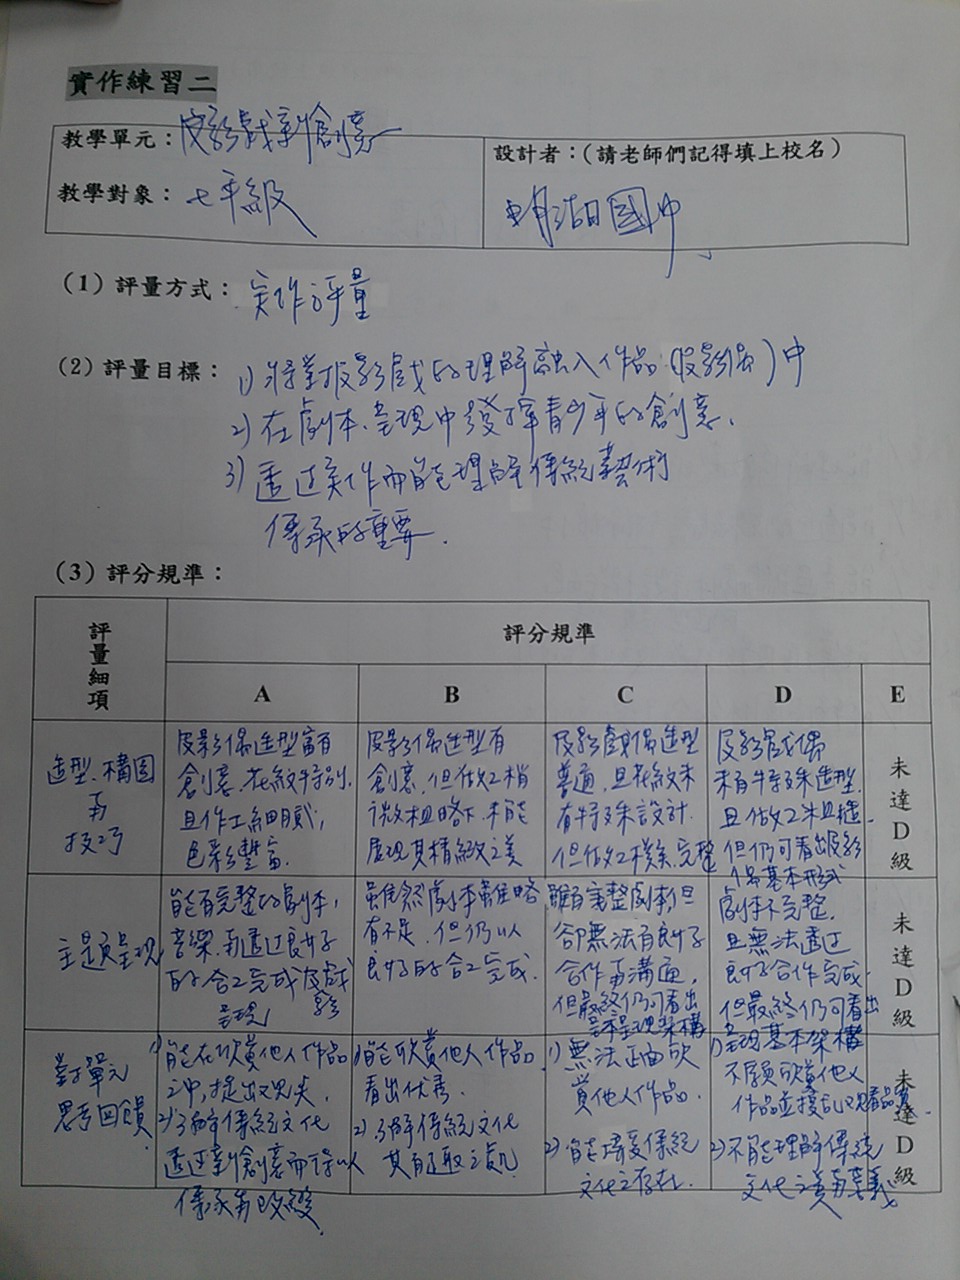 實作練習二
教學單元：皮影戲新創意
教學對象：七年級
設計者：（請老師們記得填上校名）
明湖國中
（1）評量方式：實作評量
（2）評量目標：1) 將對皮影戲的理解融入作品（皮影偶）中
2) 在劇本、呈現中發揮青少年的創意.
3) 透過實作而能理解傳統藝術
傳承的重要.
（3）評分規準：
評量細項
評分規準
A
B
C
D
E
造型、構圖
與
技巧
皮影偶造型富有
創意、花紋特別、
且作工細膩，
色彩豐富.
皮影偶造型有
創意、但做工稍
微粗略、未能
展現其精緻之美
皮影戲偶造型
普通、且花紋未
有特殊設計.
但做工樸素、完整
皮影戲偶
未有特殊造型.
且做工未且糙.
但仍可看出皮影
偶基本形式
未達D級
主題呈現
能有完整的劇本，
音樂、再透過良好
的合工完成皮影戲
呈現
雖然劇本雖略
有不足、但仍以
良好的合工完成.
雖有完整劇本，但
卻無法有良好
合作與溝通，
但最終仍可看出
基本呈現架構
劇本不完整.
且無法透過
良好合作完成
但最終仍可看出
呈現基本架構
未達D級
對單元
思考回饋
1) 能在欣賞他人作品
之中，提出見解.
2) 了解傳統文化
透過新創意而得以
傳承與改變.
1) 能欣賞他人作品
看出優秀.
2) 了解傳統文化
其有可取之處
1) 無法正面欣
賞他人作品.
2) 能接受傳統
文化之存在.
1)
不願欣賞他人
2) 不能理解傳統
文化之美與意義
未達D級